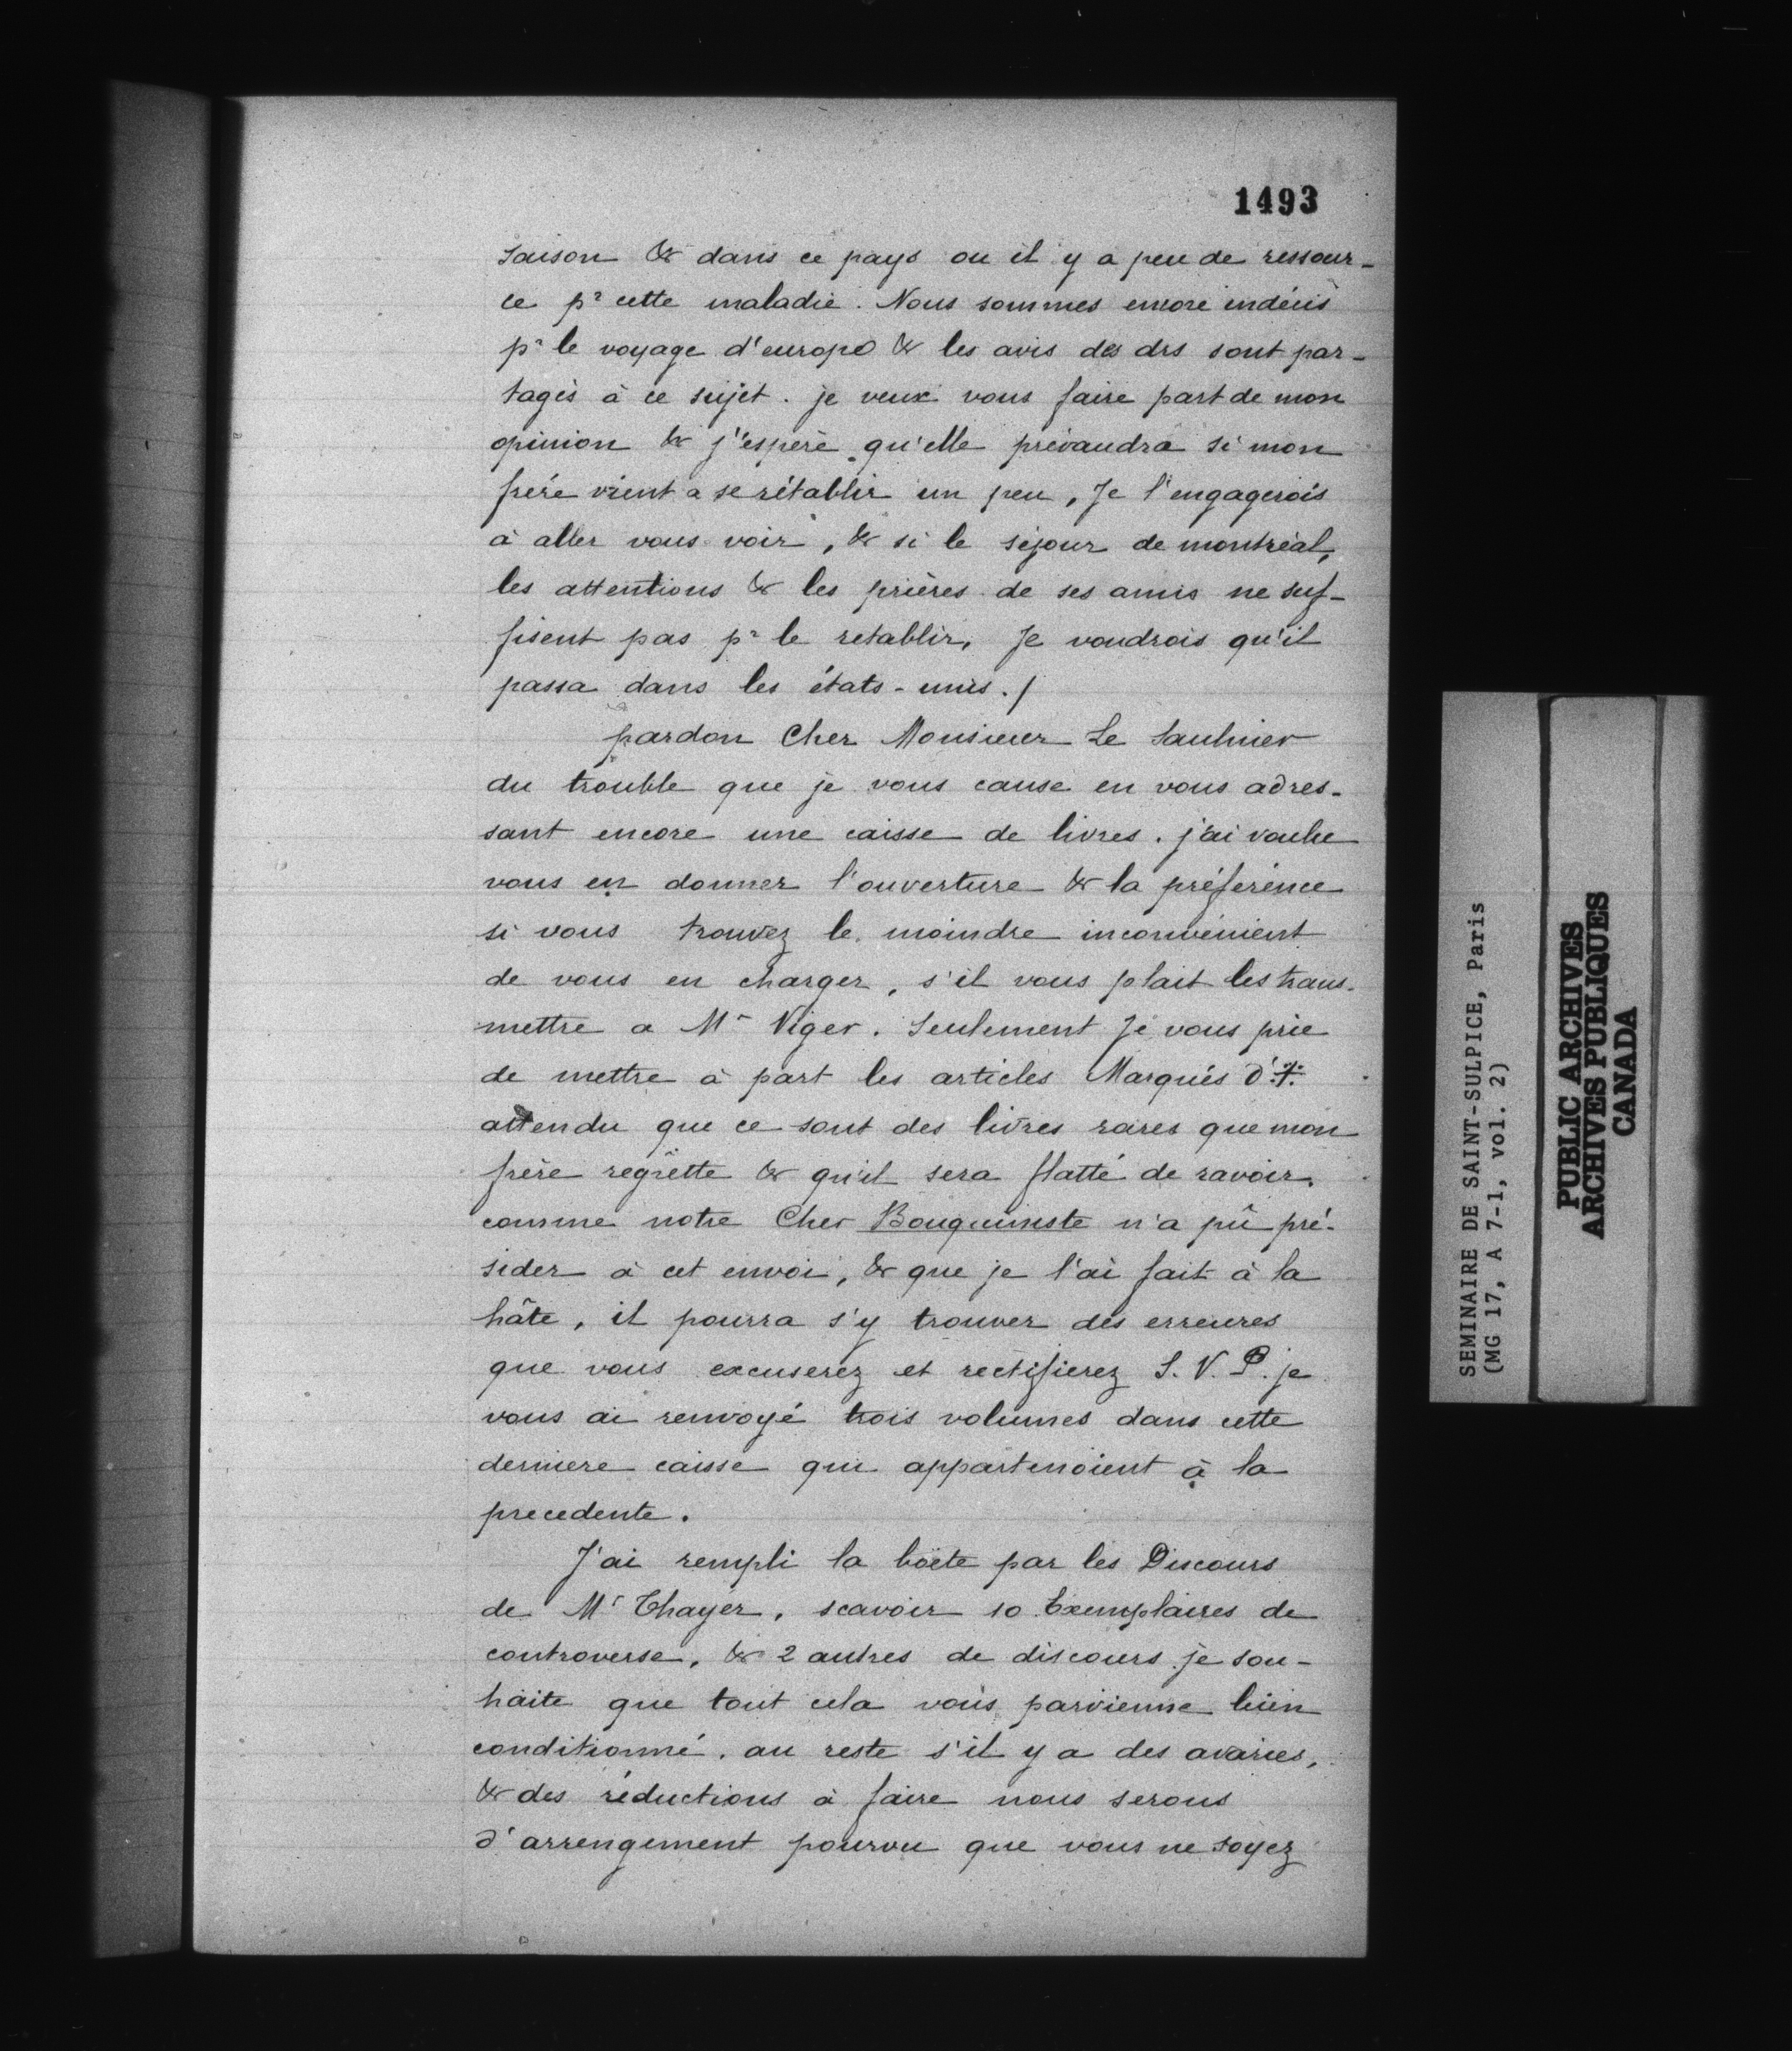 1493
saison & dans ce pays ou il y a peu de ressour-
ce pr cette maladie. Nous sommes encore indécis
pr le voyage d'europe & les avis des drs sont par-
tagés à ce sujet. je veux vous faire part de mon
opinion & j'espère qu'elle prévaudra si mon
frère vient a se rétablir un peu, Je l'engagerois
à aller vous voir, & si le séjour de montréal,
les attentions & les prières de ses amis ne suf-
fisent pas pr le retablir, Je voudrois qu'il
passa dans les états-unis./
pardon Cher Monsieur Le Saulnier
du trouble que je vous cause en vous adres-
sant encore une caisse de livres. j'ai voulu
vous en donner l'ouverture & la préférence
si vous trouvez le moindre inconvénient
de vous en charger, s'il vous plait les trans-
mettre a Mr Viger. Seulement Je vous prie
de mettre à part les articles Marqués d'
attendu que ce sont des livres rares que mon
frère regrètte & qu'il sera flatté de ravoir.
comme notre Cher Bouquiniste n'a pû pré-
sider à cet envoi, & que je l'ai fait à la
hâte, il pourra s'y trouver des erreures
que vous excuserez et rectifierez S. V. P. je
vous ai renvoyé trois volumes dans cette
derniere caisse qui appartenoient à la
precedente.
J'ai rempli la boëte par les Discours
de Mr Thayer, scavoir 10 Exemplaires de
controverse, & 2 autres de discours je sou-
haite que tout cela vous parvienne bien
conditionné. au reste s'il y a des avaries,
& des réductions à faire nous serons
d'arrengement pourvu que vous ne soyez
SEMINAIRE DE SAINT-SULPICE, Paris
(MG 17, A 7-1, vol. 2)
PUBLIC ARCHIVES
ARCHIVES PUBLIQUES
CANADA